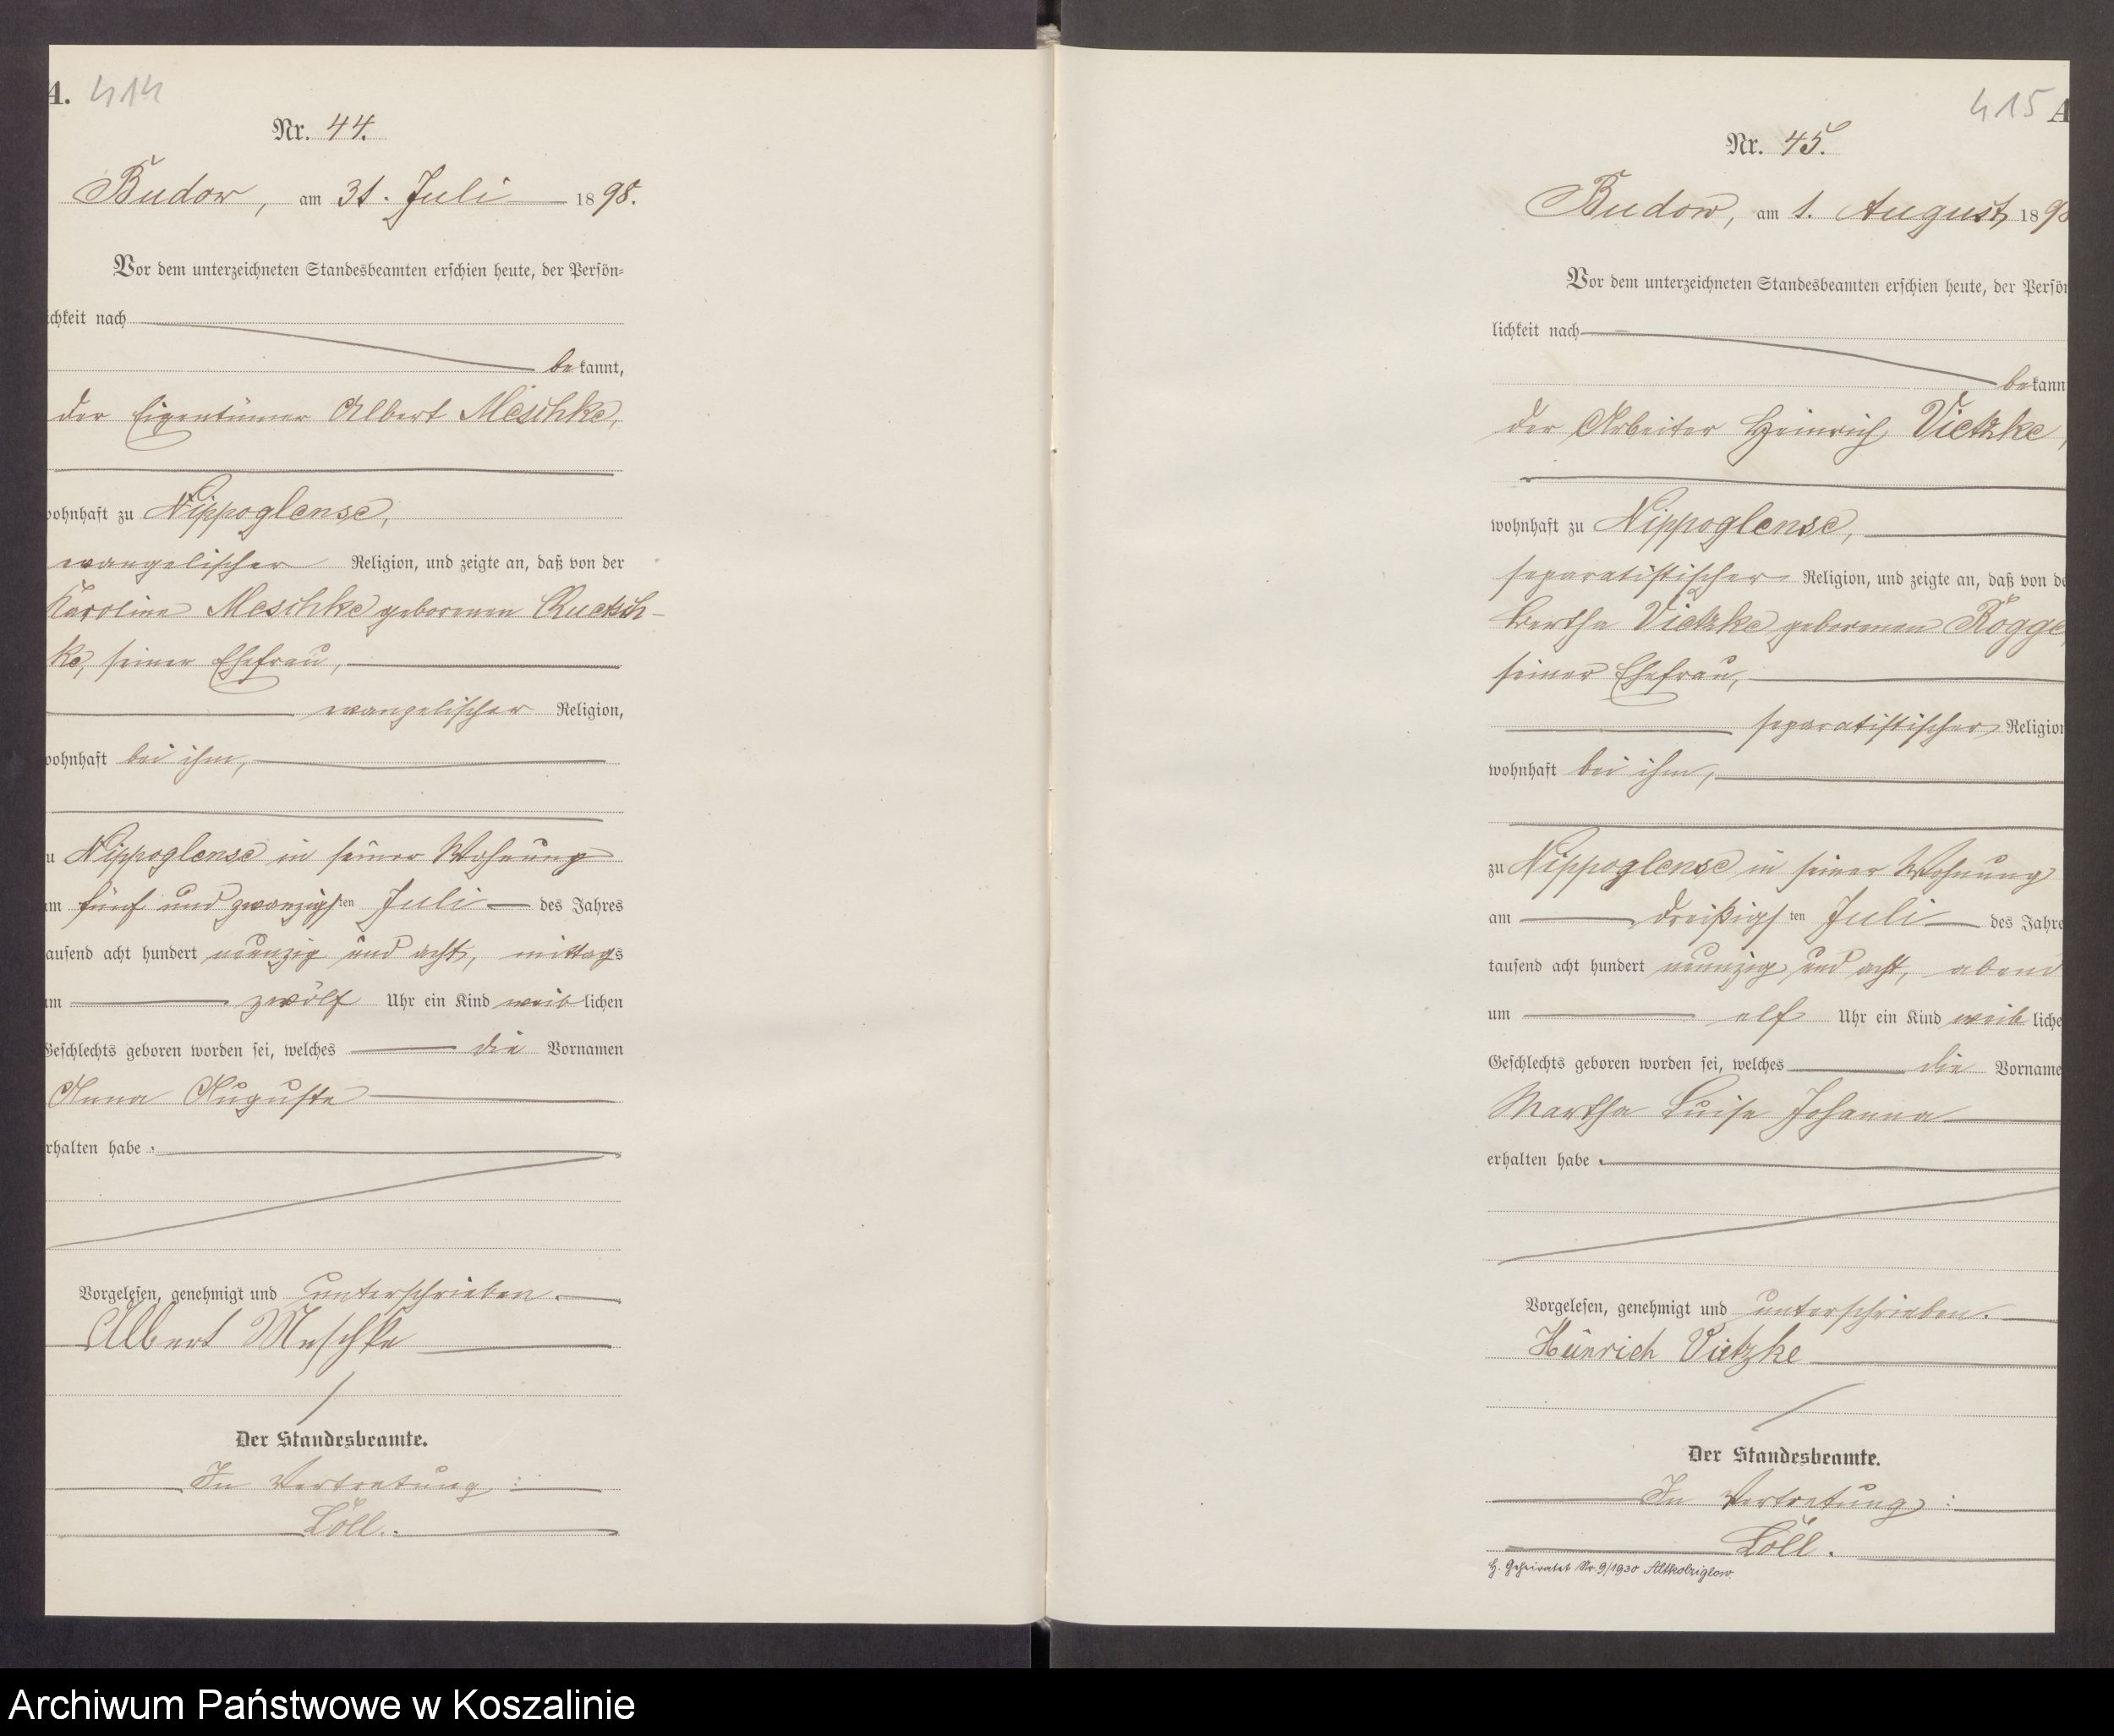 A. 414
Nr. 44.
Budow, am 31. Juli 1898.
Vor dem unterzeichneten Standesbeamten erschien heute, der Persön=
ichkeit nach
bekannt,
der Eigentümer Albert Meschke,
ohnhaft zu Nippoglense,
evangelischer Religion, und zeigte an, daß von der
Karoline Meschke geborenen
ke, seiner Ehefrau,
evangelischer Religion,
ohnhaft bei ihm,
u Nippoglense in seiner Wohnung
m fünf und zwanzigsten Juli des Jahres
ausend acht hundert neunzig und acht, mittags
m zwölf Uhr ein Kind weiblichen
Geschlechts geboren worden sei, welches die Vornamen
Anna Auguste
rhalten habe.
Vorgelesen, genehmigt und unterschrieben.
Albert Meschke
Der Standesbeamte.
In Vertretung:
Löll.
415 A
Nr. 45.
Budow, am 1. August 189
Vor dem unterzeichneten Standesbeamten erschien heute, der Persön
lichkeit nach
bekann
der Arbeiter Heinrich Vietzke,
wohnhaft zu Nippoglense,
separatistischer Religion, und zeigte an, daß von de
Bertha Vietzke geborenen Rogge,
seiner Ehefrau,
separatistischer Religion
wohnhaft bei ihm,
zu Nippoglense in seiner Wohnung
am dreißigsten Juli des Jahre
tausend acht hundert neunzig und acht, abend
um elf Uhr ein Kind weibliche
Geschlechts geboren worden sei, welches die Vorname
Martha Luise Johanna
erhalten habe.
Vorgelesen, genehmigt und unterschrieben.
Heinrich Vietzke
Der Standesbeamte.
In Vertretung:
Löll.
H. Geheiratet Nr. 9/1930 Altkolziglow.
Archiwum Państwowe w Koszalinie